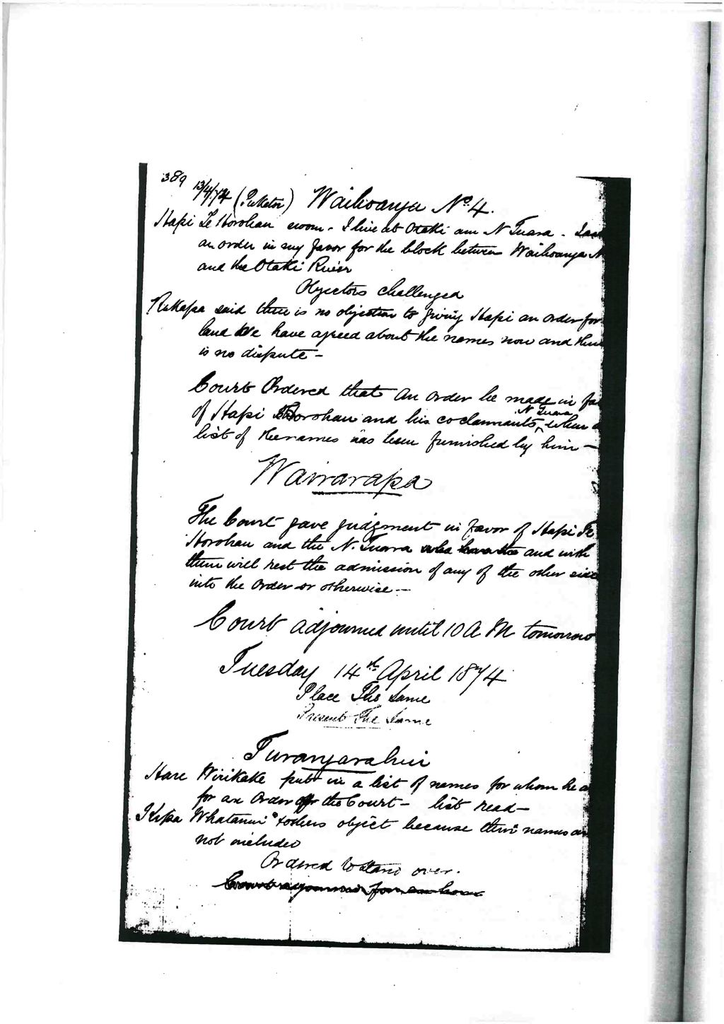 389 13/4/74 (Puketoi) Waihoanga No. 4.
Hapi Te Horohau sworn. I live at Otaki am N Tuara.
an order in my favor for the block between Waihoanga N
and the Otaki River
Objectors challenged
Rukapa said there is no objection to giving Hapi an order for
land We have agreed about the names now and there
is no dispute -
Court Ordered that an order be made in fa
of Hapi Horohau and his coclaimants N Tuara when a
list of the names has been furnished by him -
Wairarapa
The Court gave judgment in favor of Hapi Te
Horohau and the N. Tuara and with
them will rest the admission of any of the other side
into the Order or otherwise -
Court adjourned until 10 A M tomorrow
Tuesday 14th April 1874
Place The Same
Present The Same
Turangarahui
Hare Wirikake put in a list of names for whom he a
for an Order of the Court - list read -
Kipa Whatanui & others object because their names a
not included
Ordered to stand over.
Court adjourned for an hour